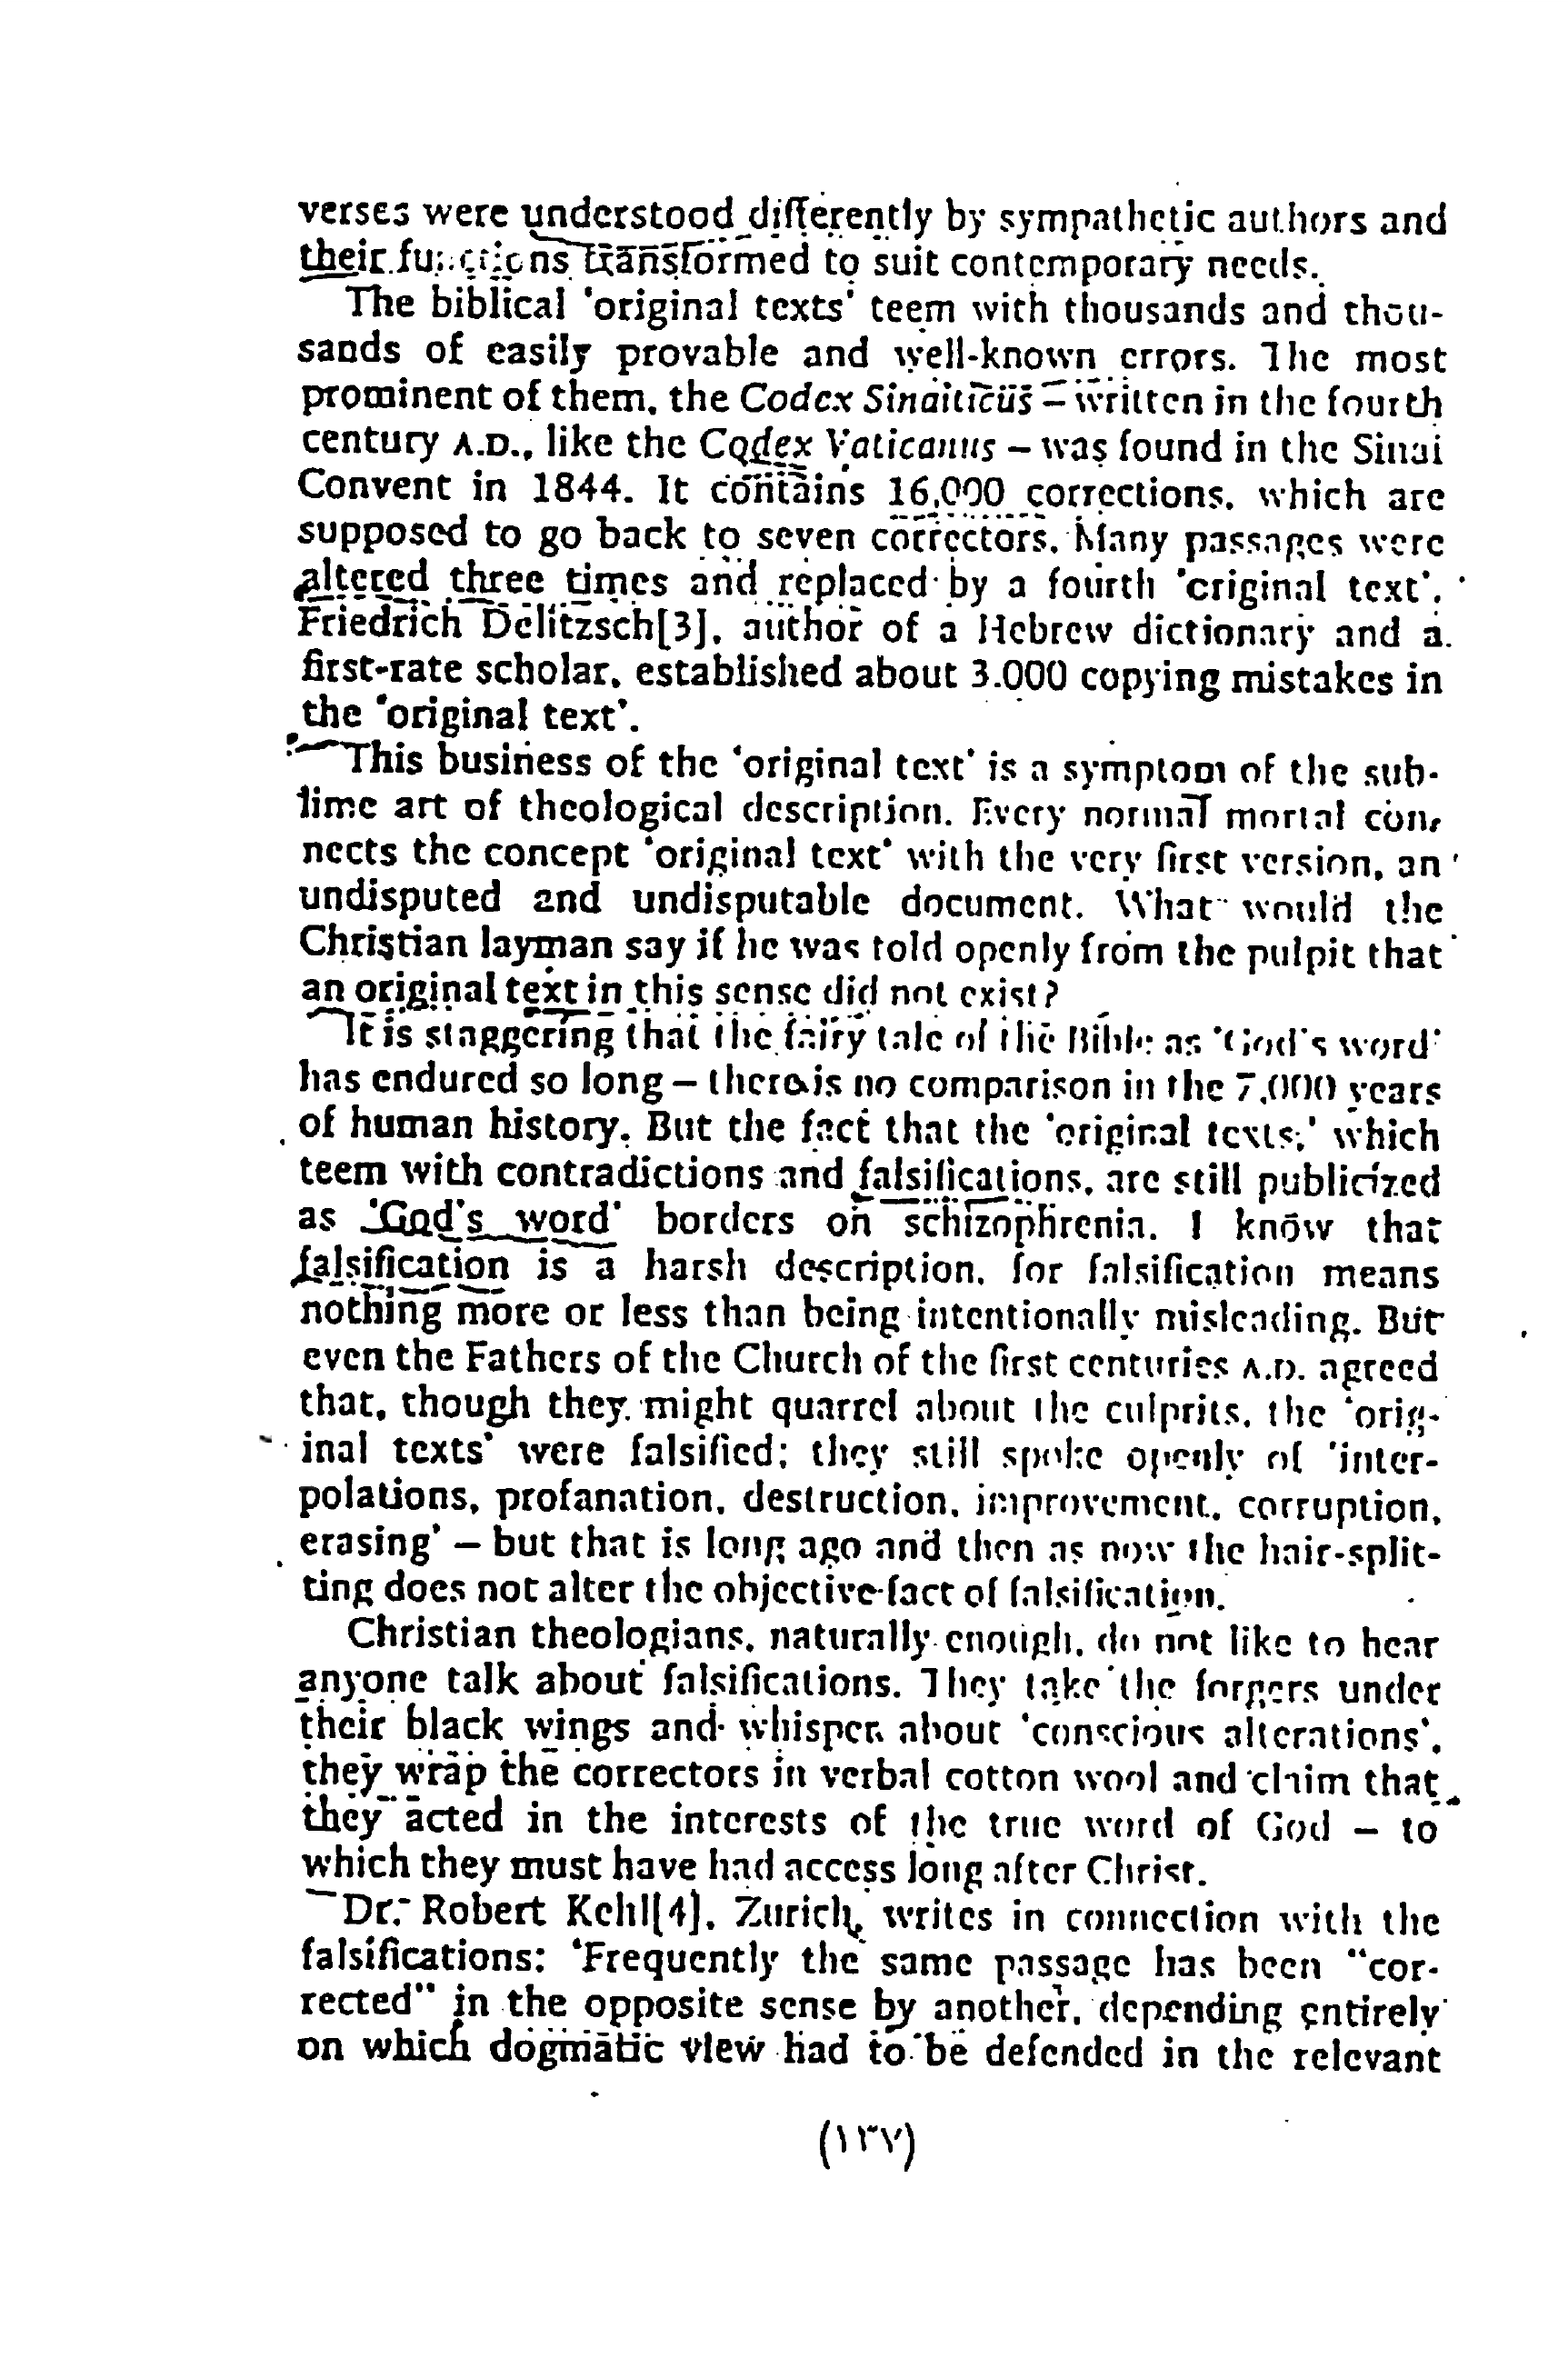 verses were understood differently by sympathetic authors and
their functions transformed to suit contemporary needs.
The biblical 'original texts' teem with thousands and thou-
sands of easily provable and well-known errors. The most
prominent of them, the Codex Sinaiticus – written in the fourth
century A.D., like the Codex Vaticanus – was found in the Sinai
Convent in 1844. It contains 16,000 corrections, which are
supposed to go back to seven correctors. Many passages were
altered three times and replaced by a fourth 'original text'.
Friedrich Delitzsch[3], author of a Hebrew dictionary and a
first-rate scholar, established about 3.000 copying mistakes in
the 'original text'.
This business of the 'original text' is a symptom of the sub-
lime art of theological description. Every normal mortal con-
nects the concept 'original text' with the very first version, an
undisputed and undisputable document. What would the
Christian layman say if he was told openly from the pulpit that
an original text in this sense did not exist?
It is staggering that the fairy tale of the Bible as 'God's word'
has endured so long – there is no comparison in the 7,000 years
of human history. But the fact that the 'original texts,' which
teem with contradictions and falsifications, are still publicized
as 'God's word' borders on schizophrenia. I know that
falsification is a harsh description, for falsification means
nothing more or less than being intentionally misleading. But
even the Fathers of the Church of the first centuries A.D. agreed
that, though they might quarrel about the culprits, the 'orig-
inal texts' were falsified; they still spoke openly of 'inter-
polations, profanation, destruction, improvement, corruption,
erasing' – but that is long ago and then as now the hair-split-
ting does not alter the objective fact of falsification.
Christian theologians, naturally enough, do not like to hear
anyone talk about falsifications. They take the forgers under
their black wings and whisper about 'conscious alterations',
they wrap the correctors in verbal cotton wool and claim that
they acted in the interests of the true word of God – to
which they must have had access long after Christ.
Dr. Robert Kehl[4], Zurich, writes in connection with the
falsifications: 'Frequently the same passage has been "cor-
rected" in the opposite sense by another, depending entirely
on which dogmatic view had to be defended in the relevant
(١٣٧)